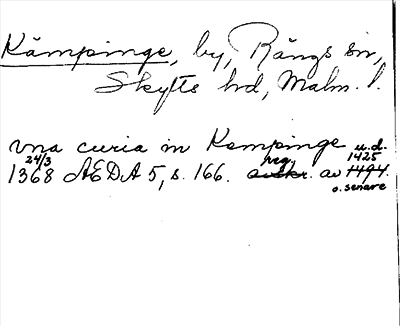 Kämpinge, by, Rängs sn,
Skytts hd, Malm. l.
vna curia in Kempinge u.d.
24/3 1425
1368 AEDA 5, s. 166. reg. avskr. av 1494
o. senare